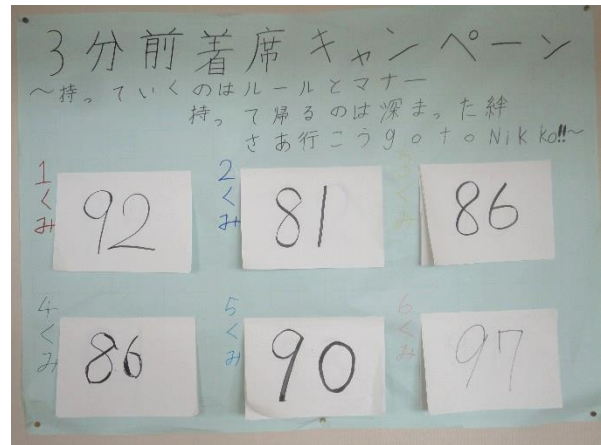 3分前着席キャンペーン
～持っていくのはルールとマナー
持って帰るのは深まった絆
さあ行こうgo to Nikko!!～
1くみ
92
2くみ
81
3くみ
86
4くみ
86
5くみ
90
6くみ
97